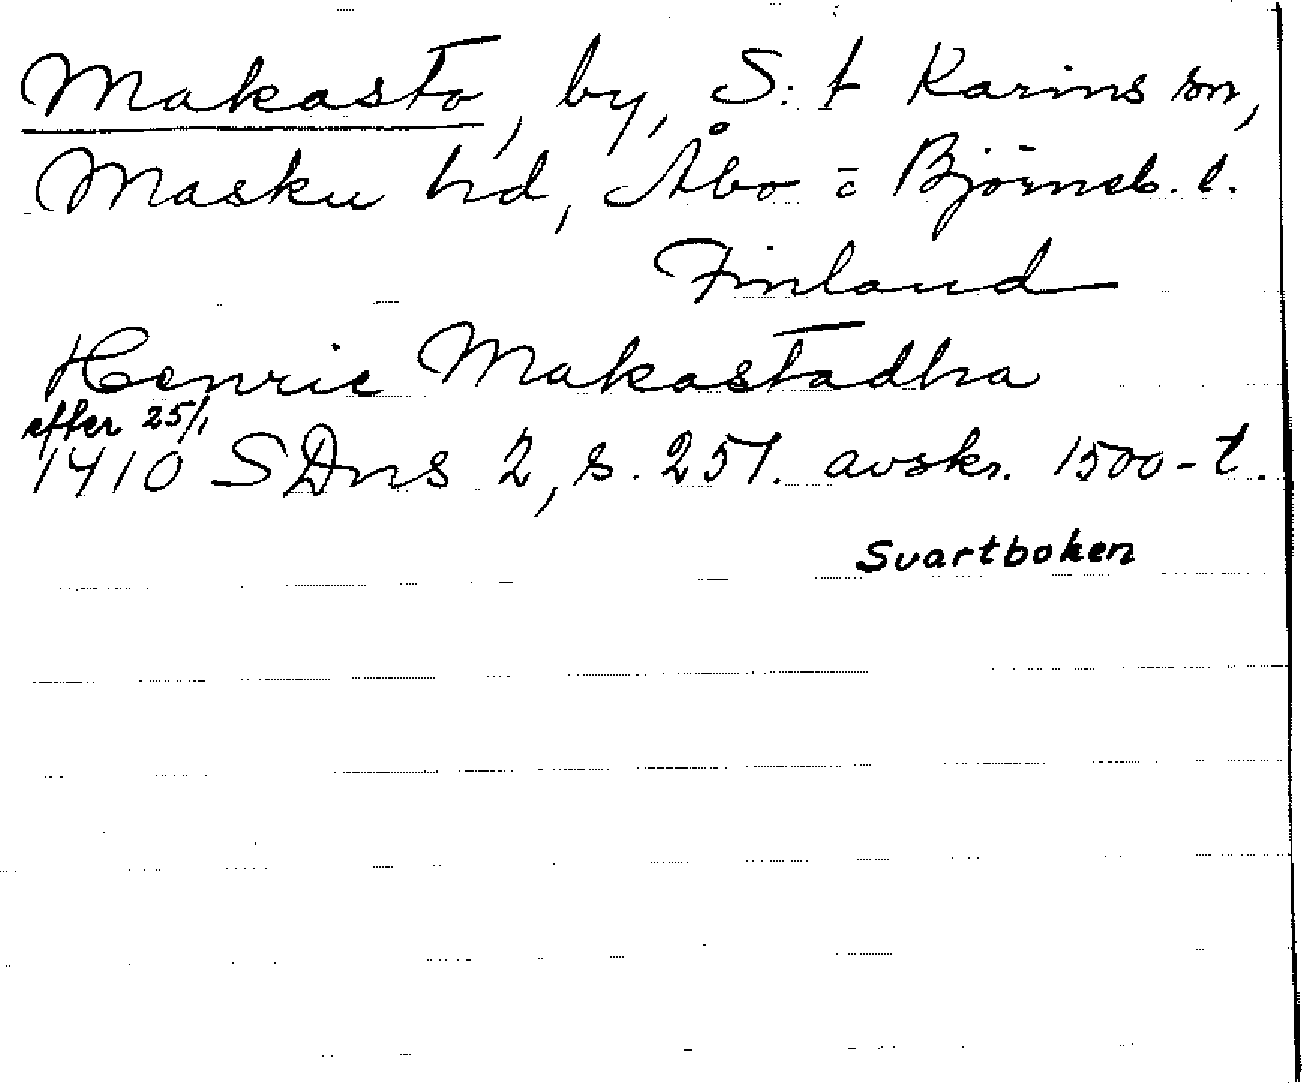 Makasto, by, S:t Karins sn,
Masku hd, Åbo = Björneb. l.
Finland
Henric Makastadha
efter 25/1
1410 SDns 2, s. 257. avskr. 1500-t.
Svartboken